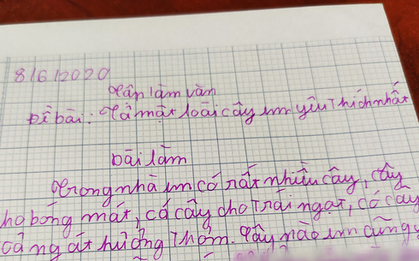 8/6/2020
Tập làm văn
Đề bài: Tả một loài cây em yêu thích nhất
Bài làm
Trong nhà em có rất nhiều cây, cây
ho bóng mát, có cây cho trái ngọt, có cây
oả ngát hương thơm. Cây nào em cũng y